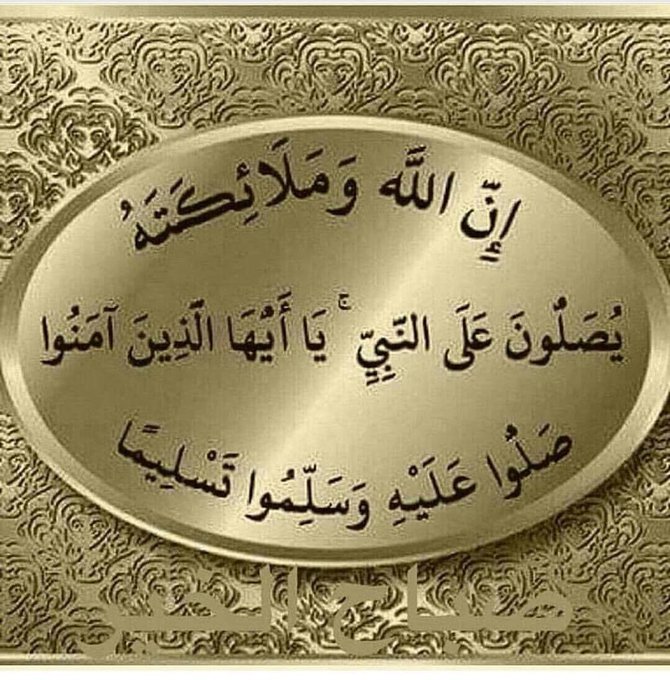 إِنَّ اللَّهَ وَمَلَائِكَتَهُ
يُصَلُّونَ عَلَى النَّبِيِّ ۚ يَا أَيُّهَا الَّذِينَ آمَنُوا
صَلُّوا عَلَيْهِ وَسَلِّمُوا تَسْلِيمًا